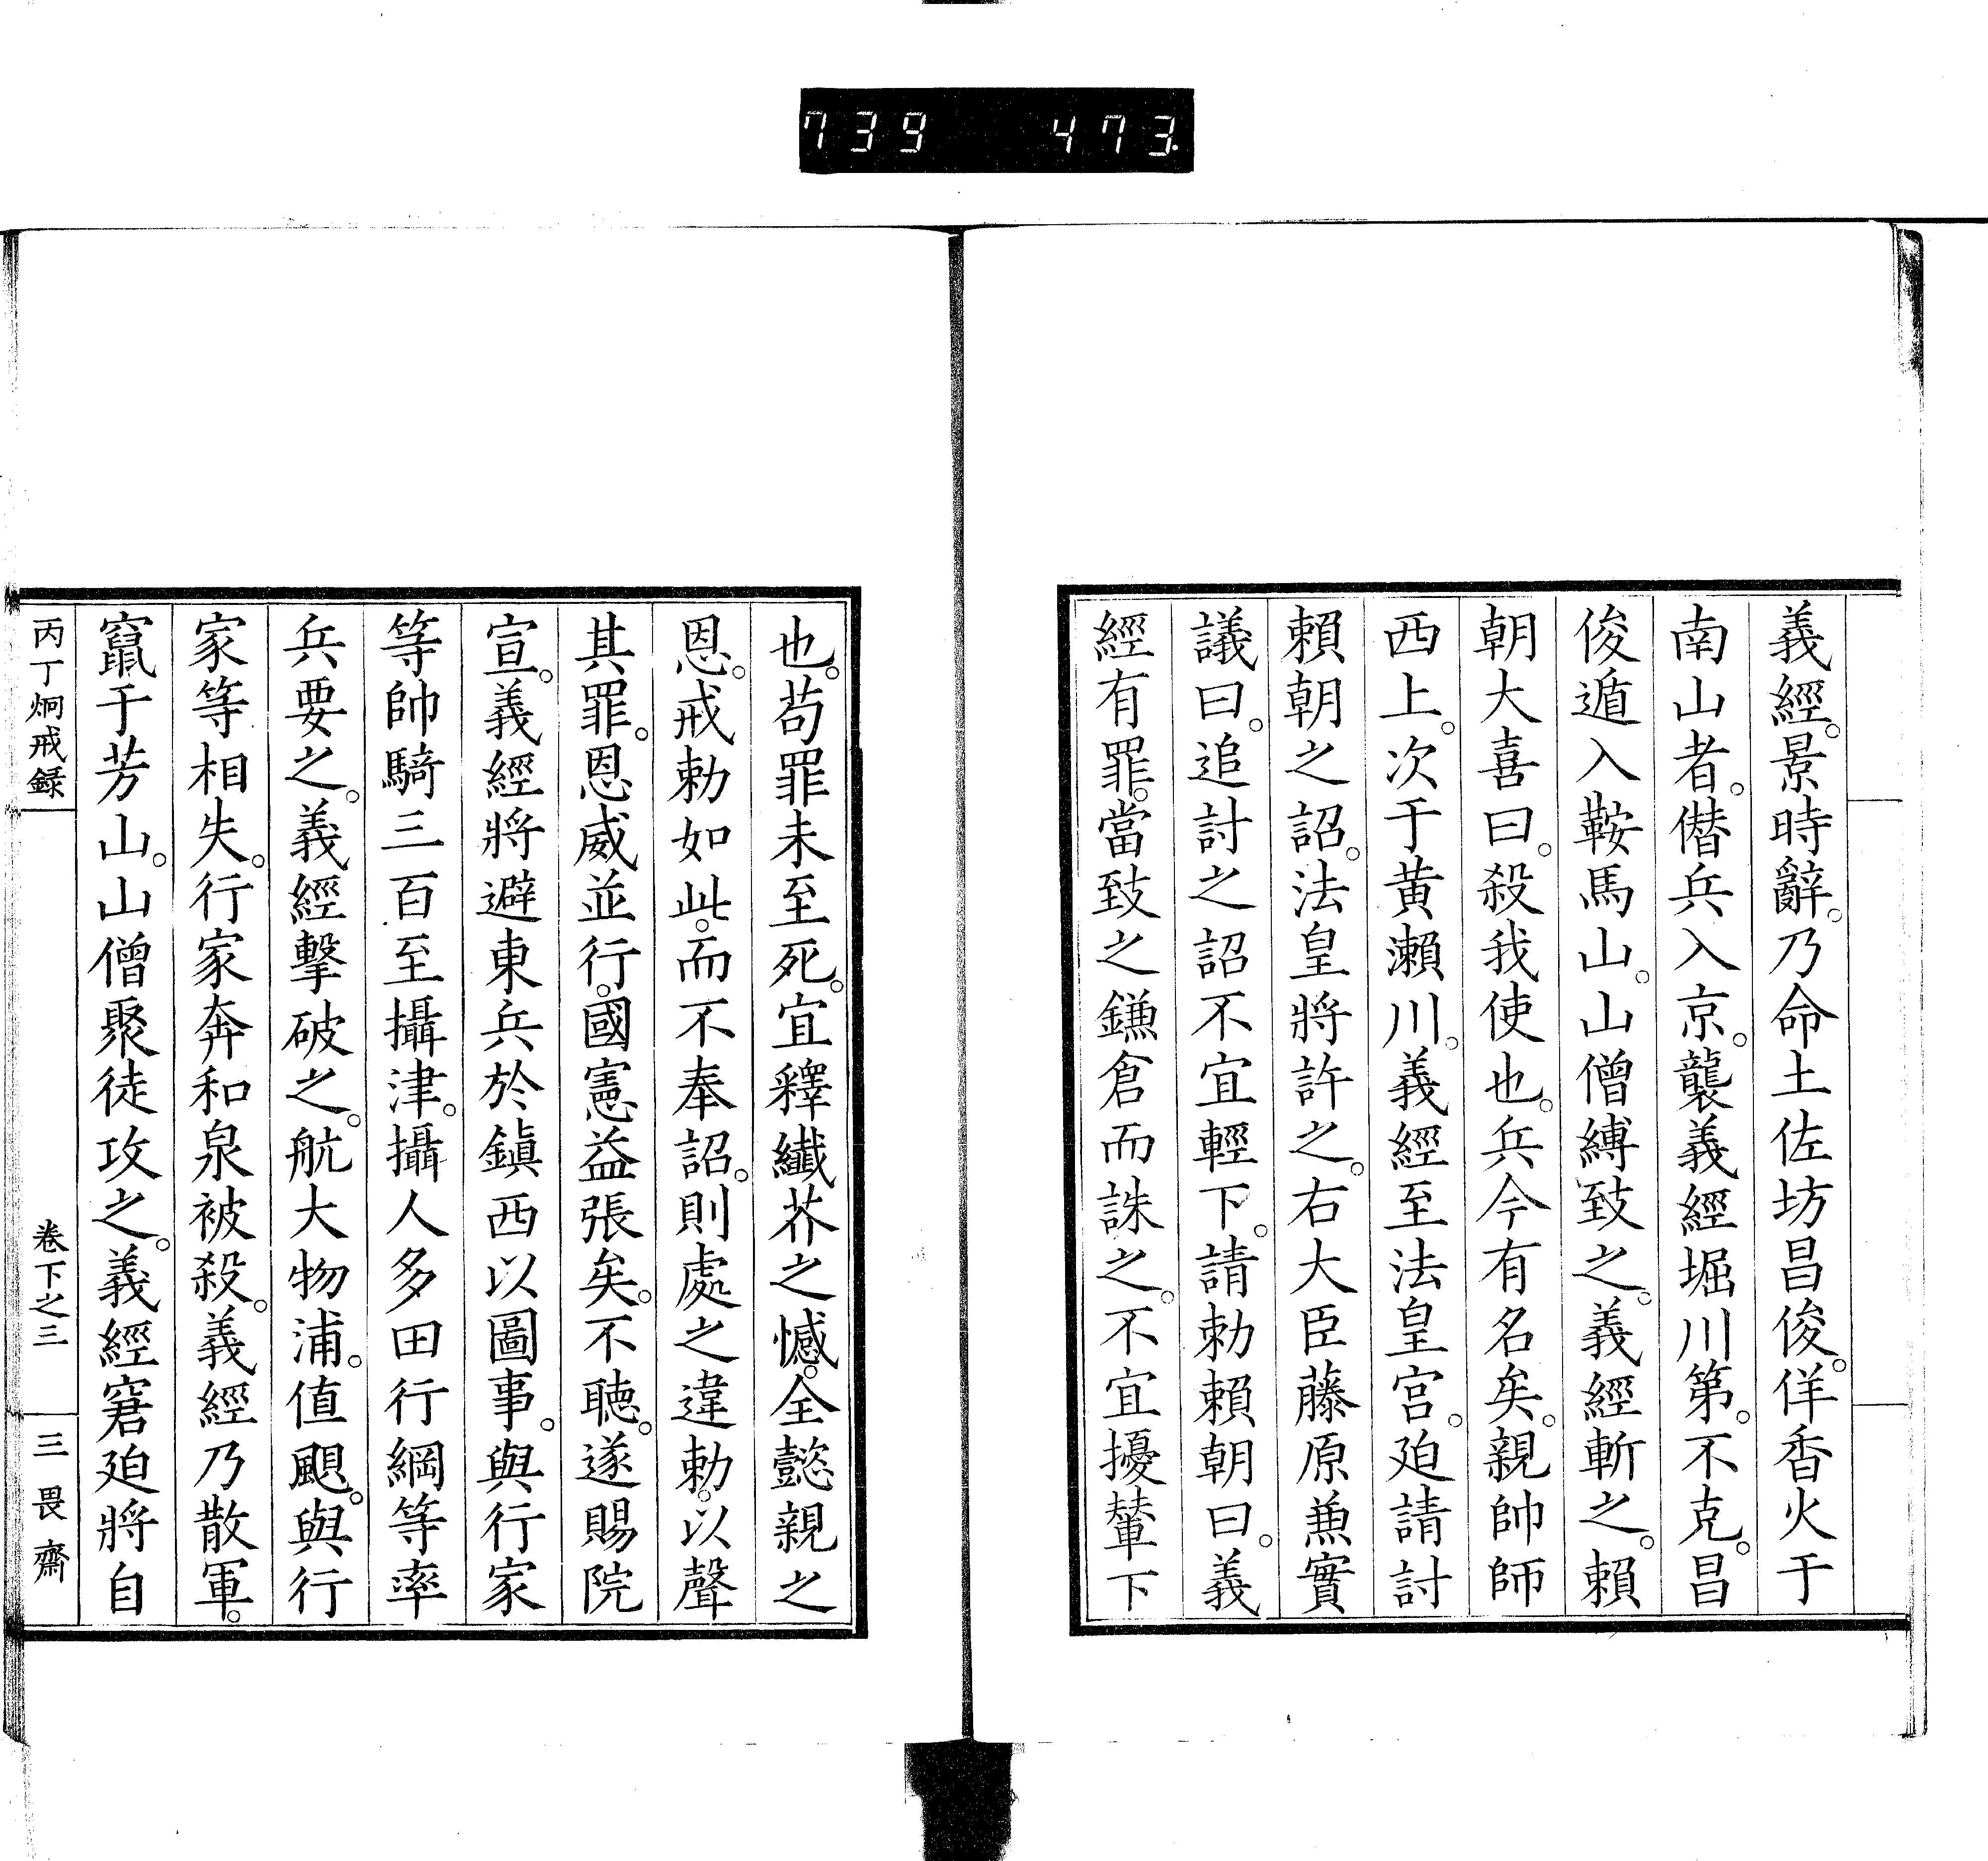 739 473.
義經。景時辭。乃命土佐坊昌俊。佯香火于
南山者。僣兵入京。襲義經堀川第。不克。昌
俊遁入鞍馬山。山僧縛致之。義經斬之。賴
朝大喜曰。殺我使也。兵今有名矣。親帥師
西上。次于黄瀨川。義經至法皇宮。廹請討
賴朝之詔。法皇將許之。右大臣藤原兼實
議曰。追討之詔不宜輕下。請勅賴朝曰。義
經有罪。當致之鎌倉而誅之。不宜擾輦下
也。苟罪未至死。宜釋纖芥之憾。全懿親之
恩。戒勅如此。而不奉詔。則處之違勅。以聲
其罪。恩威並行。國憲益張矣。不聽。遂賜院
宣。義經將避東兵於鎭西以圖事。與行家
等帥騎三百至攝津。攝人多田行綱等率
兵要之。義經擊破之。航大物浦。值颶。與行
家等相失。行家奔和泉被殺。義經乃散軍。
竄于芳山。山僧聚徒攻之。義經窘廹將自
丙丁炯戒録 卷下之三 三畏齋